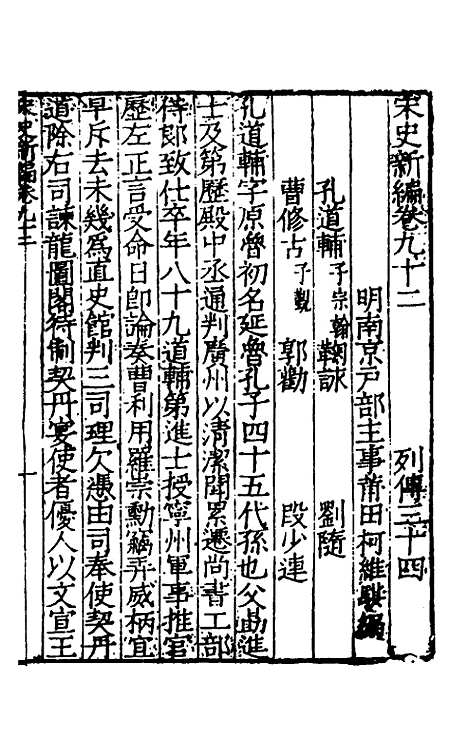 宋史新編卷九十二　列傳三十四
明南京戸部主事莆田柯維騏編
孔道輔子宗翰　鞠詠　劉隨
曹修古子觀　郭勸　段少連
孔道輔字原魯初名延魯孔子四十五代孫也父勗進
士及第歷殿中丞通判廣州以清潔聞累遷尚書工部
侍郎致仕卒年八十九道輔第進士授寧州軍事推官
歷左正言受命日卽論奏曹利用羅崇勳竊弄威柄宜
早斥去未幾爲直史館判三司理欠憑由司奉使契丹
道除右司諫龍圖閣待制契丹宴使者優人以文宣王
宋史新編卷九十二　一